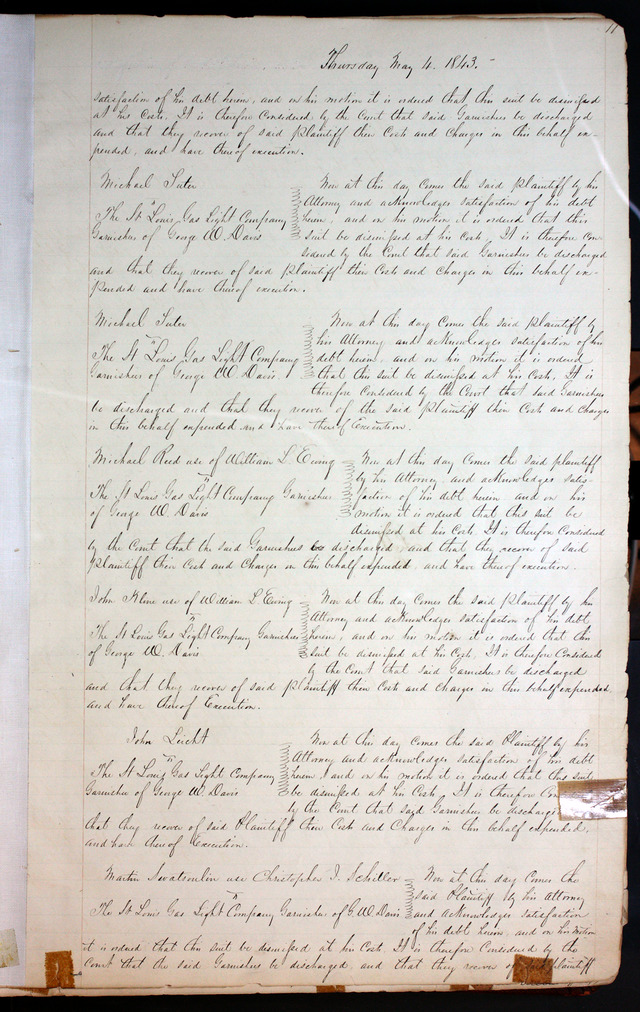 11
Thursday May 4. 1843.
satisfaction of his debt herein, and on his motion it is ordered that this suit be dismissed
at his Costs. It is therefore Considered by the Court that said Garnishees be discharged
and that they recover of said plaintiff their Costs and Charges in this behalf ex-
pended, and have thereof execution.
Michael Suter
vs
The St Louis Gas Light Company
Garnishees of George W. Davis
Now at this day Comes the said plaintiff by his
Attorney and acknowledges satisfaction of his debt
herein, and on his motion it is ordered that this
suit be dismissed at his Costs, It is therefore Con-
sidered by the Court that said Garnishees be discharged
and that they recover of said plaintiff their Costs and Charges in this behalf ex-
pended and have thereof execution.
Michael Suter
vs
The St Louis Gas Light Company
Garnishees of George W Davis.
Now at this day Comes the said plaintiff by
his Attorney and acknowledges satisfaction of his
debt herein, and on his motion it is ordered
that this suit be dismissed at his Costs, It is
therefore Considered by the Court that said Garnishees
be discharged and that they recover of the said plaintiff their Costs and Charges
in this behalf expended and have thereof Execution.
Michael Reed use of William L Ewing
vs
The St Louis Gas Light Company Garnishees
of George W. Davis
Now at this day Comes the said plaintiff
by his Attorney and acknowledges satis-
faction of his debt herein and on his
motion it is ordered that this suit be
dismissed at his Costs. It is therefore Considered
by the Court that the said Garnishees be discharged and that they recover of said
plaintiff their Cost and Charges in this behalf expended and have thereof execution.
John Kline use of William L Ewing
vs
The St Louis Gas Light Company Garnishees
of George W. Davis
Now at this day Comes the said plaintiff by his
Attorney and acknowledges satisfaction of his debt
herein, and on his motion it is ordered that this
suit be dismissed at his Costs, It is therefore Considered
by the Court that said Garnishees be discharged
and that they recover of said plaintiff their Costs and Charges in this behalf expended
and have thereof Execution.
John Leicht
vs
The St Louis Gas Light Company
Garnishees of George W. Davis
Now at this day Comes the said Plaintiff by his
Attorney and acknowledges satisfaction of his debt
herein, and on his motion it is ordered that this suit
be dismissed at his Costs, It is therefore
by the Court that said Garnishees be
that they recover of said Plaintiff their Costs and Charges in this behalf expended,
and have thereof Execution.
Martin use Christopher J. Schiller
vs
The St Louis Gas Light Company Garnishees of G. W. Davis
Now at this day Comes the
said Plaintiff by his Attorney
and acknowledges satisfaction
of his debt herein, and on his motion
it is ordered that this suit be dismissed at his Costs. It is therefore Considered by the
Court that the said Garnishees be discharged, and that they recover of said plaintiff